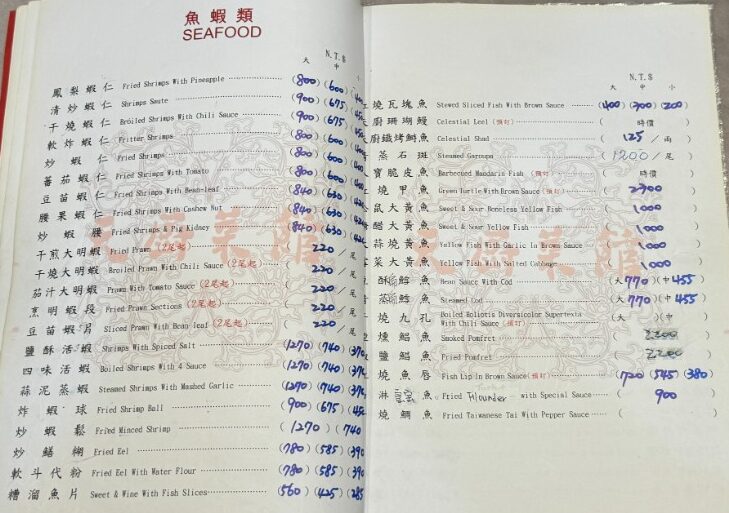 魚蝦類
SEAFOOD
N.T.$
大 中 小
鳳梨蝦仁 Fried Shrimps With Pineapple (800) (600)
清炒蝦仁 Shrimps Saute (900) (675)
干燒蝦仁 Broiled Shrimps With Chili Sauce (900) (675)
軟炸蝦仁 Fritter Shrimps (800) (600)
炒蝦仁 Fried Shrimps (800) (600)
蕃茄蝦仁 Fried Shrimps With Tomato (800) (600)
豆苗蝦仁 Fried Shrimps With Bean-leaf (840) (630)
腰果蝦仁 Fried Shrimps With Cashew Nut (840) (630)
炒蝦腰 Fried Shrimps & Pig Kidney (840) (630)
干煎大明蝦 Fried Prawn (2尾起) (220/尾
干燒大明蝦 Broiled Prawn With Chili Sauce (2尾起) (220/尾
茄汁大明蝦 Prawn With Tomato Sauce (2尾起) (220/尾
烹明蝦段 Fried Prawn Sections (2尾起) (220/尾
豆苗蝦片 Sliced Prawn With Bean leaf (2尾起) (220/尾
鹽酥活蝦 Shrimps With Spiced Salt (1270) (740)
四味活蝦 Boiled Shrimps With 4 Sauce (1270) (740)
蒜泥蒸蝦 Steamed Shrimps With Mashed Garlic (1270) (740)
炸蝦球 Fried Shrimp Ball (900) (675)
炒蝦鬆 Fried Minced Shrimp (1270) (740
炒鱔糊 Fried Eel (780) (585) (390
軟斗代粉 Fried Eel With Water Flour (780) (585) (390
糟溜魚片 Sweet & Wine With Fish Slices (560) (425) (285
N.T.$
大 中 小
燒瓦塊魚 Stewed Sliced Fish With Brown Sauce (400) (300) (200)
廚珊瑚鰻 Celestial Leel (預訂) (時價)
廚鐵烤鰣魚 Celestial Shad (125/兩)
蒸石斑 Steamed Garoupa (1200/尾)
寶脆皮魚 Barbecued Mandaris Fish (預訂) (時價)
燒甲魚 Green Turtle With Brown Sauce (預訂) (2300)
鼠大黃魚 Sweet & Sour Boneless Yellow Fish (1000)
醋大黃魚 Sweet & Sour Yellow Fish (1000)
蒜燒黃魚 Yellow Fish With Garlic In Brown Sauce (1000)
菜大黃魚 Yellow Fish With Salted Cabbage (1000)
酥鱈魚 Bean Sauce With Cod (大770) (中455)
蒸鱈魚 Steamed Cod (大770) (中455)
燒九孔 Boiled Haliotis Diversicolor Supertexta With Chili Sauce (預訂) (大 ) (中 )
燻鯧魚 Smoked Pomfret (2200)
鹽鯧魚 Fried Pomfret (2200)
燒魚唇 Fish Lip In Brown Sauce (預訂) (720) (545) (380)
淋 魚 Fried Flounder with Special Sauce (900)
燒鯛魚 Fried Taiwanese Tai With Pepper Sauce ( )